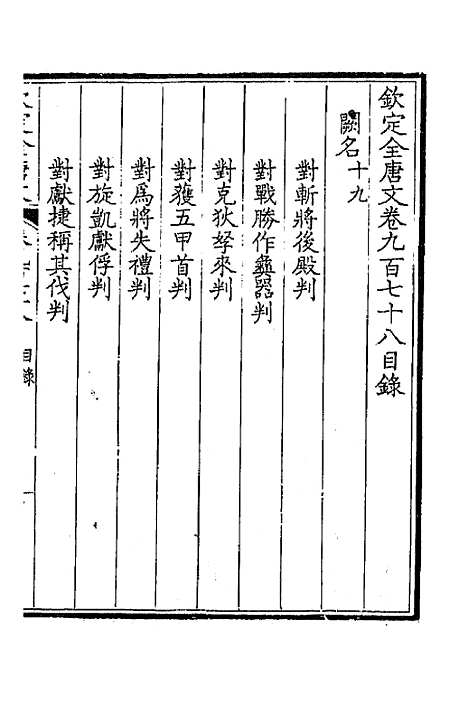 欽定全唐文卷九百七十八目錄
闕名十九
對斬將後殿判
對戰勝作彝器判
對克狄孥來判
對獲五甲首判
對爲將失禮判
對旋凱獻俘判
對獻捷稱其伐判
目錄